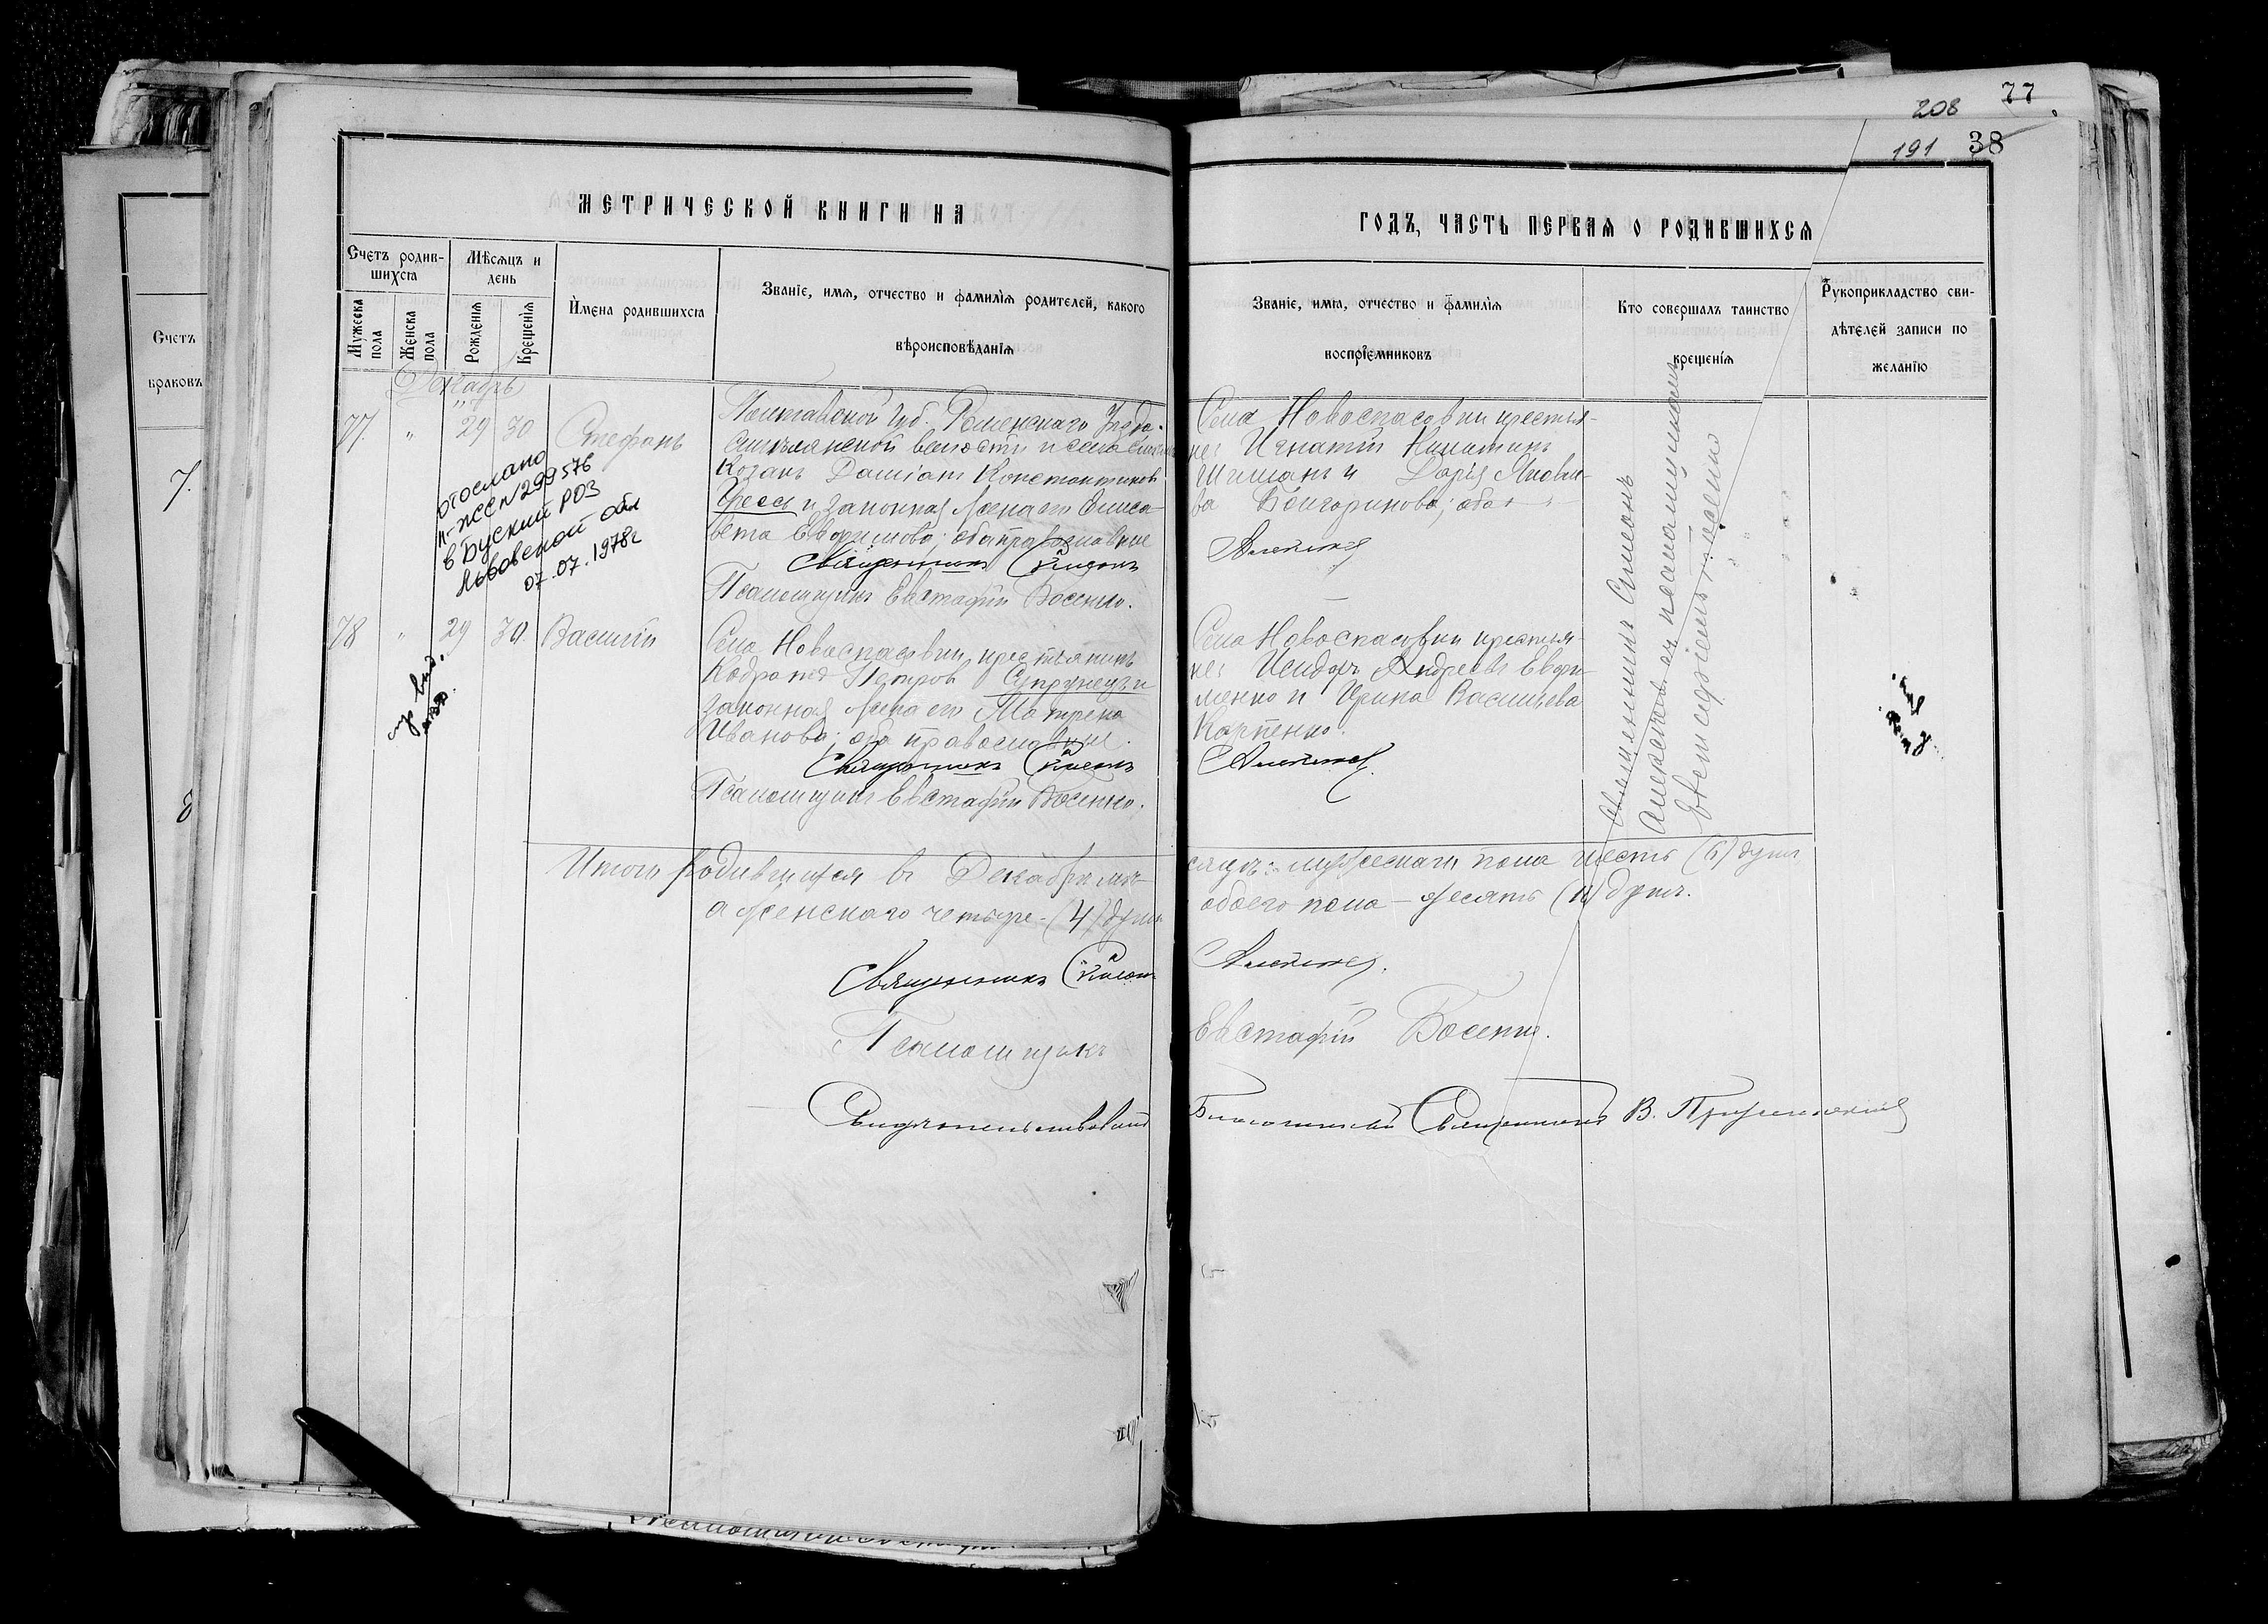 208 77
191 38
МЕТРИЧЕСКОЙ КНИГИ НА
ГОДЪ, ЧАСТЬ ПЕРВАЯ О РОДИВШИХСЯ
Счетъ родив-
шихся
Мужеска
пола
Женска
пола
Мѣсяцъ и
день
Рожденія
Крещенія
Имена родившихся
Званіе, имя, отчество и фамилія родителей, какого
вѣроисповѣданія
Званіе, имя, отчество и фамилія
воспріемниковъ
Кто совершалъ таинство
крещенія
Рукоприкладство сви-
дѣтелей записи по
желанію
Счетъ
браковъ
7.
8
Декабрь
77. " 29 30 Стефанъ
Полтавской губ. Роменскаго уѣзда
волости и села
Козакъ Даміанъ Константиновъ
и законная жена его Елиса-
вета Ефимова; оба православные
Священникъ Симеонъ
Псаломщикъ Евстафій Босенко.
Села Новоспасовки крестья-
не: Игнатій Никитинъ
Шишанъ и Дарія Яковле-
ва оба
Алейниковъ
отослано
п-ЖСС №299576
в Буский РОЗ
Львовской обл
07.07.1978г
78 " 29 30 Василій
Села Новоспасовки крестьянинъ
Кодратъ Петровъ Супрунецъ и
законная жена его Матрена
Иванова; оба православные.
Священникъ Симеонъ
Псаломщикъ Евстафій Босенко.
Села Новоспасовки крестья-
не: Исидоръ Андреевъ Ефи-
менко и Ирина Васильева
Карпенко.
Священникъ Симеонъ
съ псаломщикомъ
Евстафіемъ Босенко
Итого родившихся въ Декабрѣ мѣ-
сяцѣ: мужескаго пола шесть (6) душъ
а женскаго четыре - (4) душъ
обоего пола - десять (10) душъ.
Священникъ Симеонъ
Псаломщикъ
Евстафій Босенко.
Свидѣтельствовалъ
Благочинный Священникъ В.